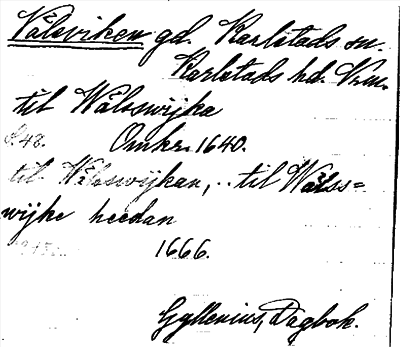 Välsviken gd. Karlstads sn.
Karlstads hd. Vrm.
til Wälswijka
s. 48. Omkr. 1640.
til Wälswijkan, .. til Wälss=
wijke heedan
1666.
Gyllenius, Dagbok.